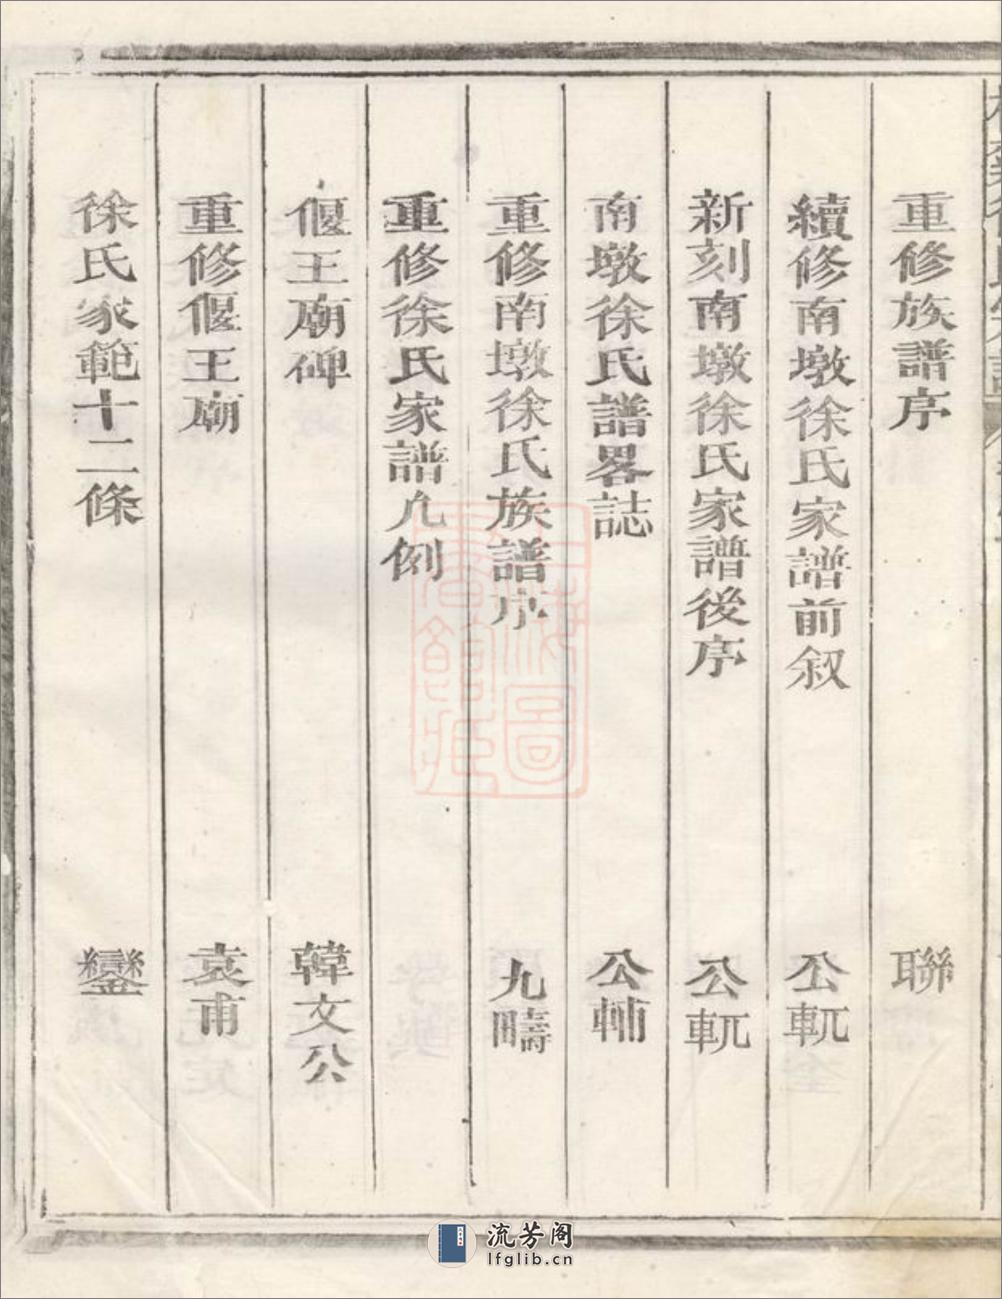 重修族譜序 聯
續修南墩徐氏家譜前叙 公軏
新刻南墩徐氏家譜後序 公軏
南墩徐氏譜畧誌 公輔
重修南墩徐氏族譜序 九疇
重修徐氏家譜凡例
偃王廟碑 韓文公
重修偃王廟 袁甫
徐氏家範十二條 鑾
上海圖書館藏
流芳阁
lfglib.cn